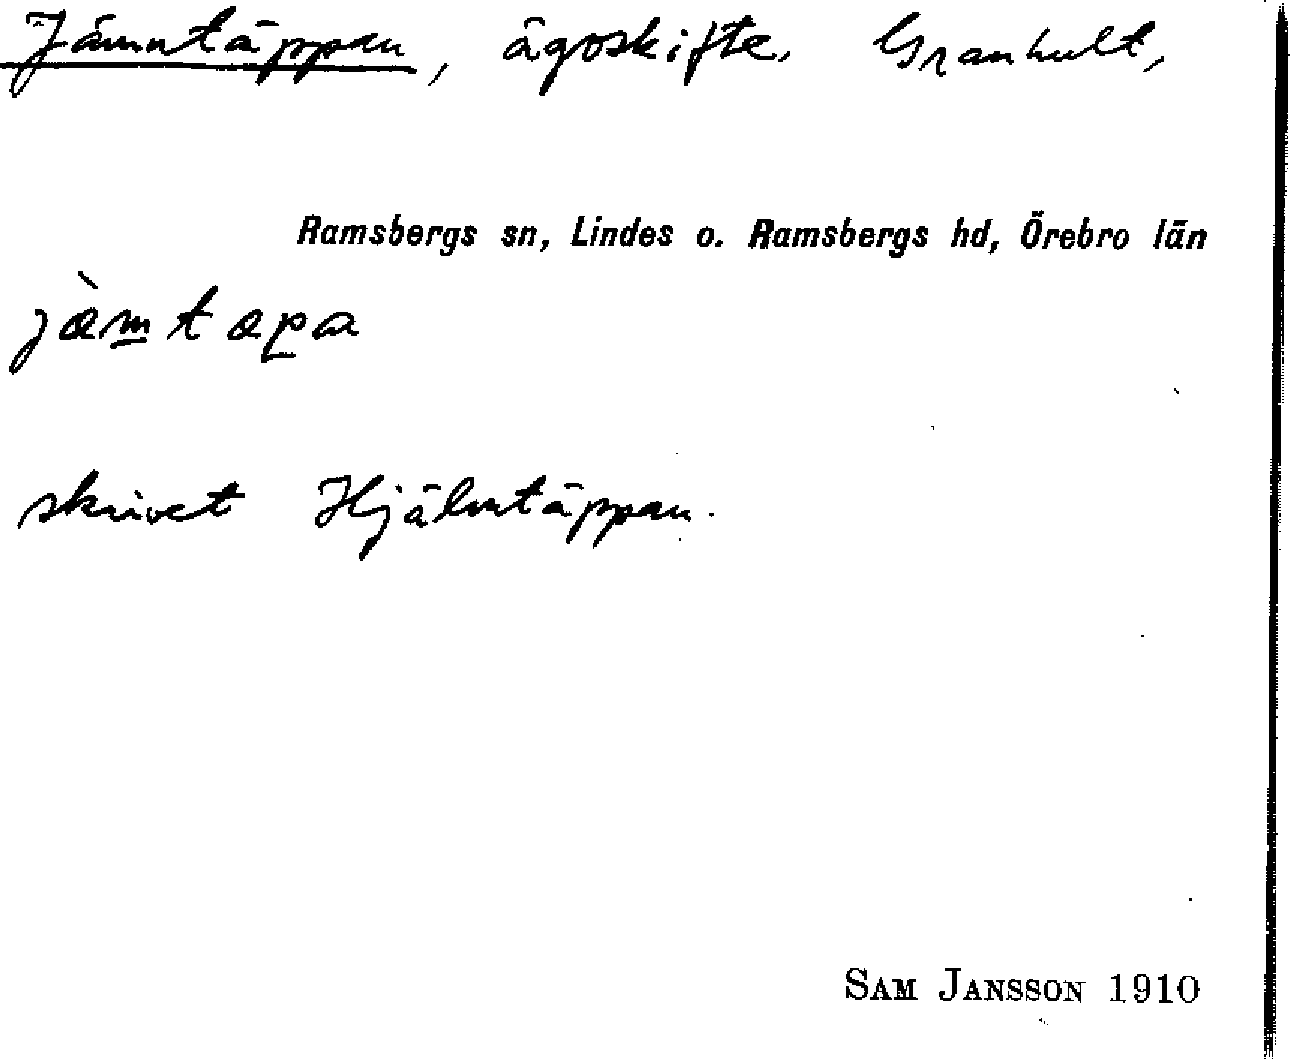 Jämntäppan, ägoskifte, Granhult,
Ramsbergs sn, Lindes o. Ramsbergs hd, Örebro län
jæ̀m̲tæp̲a
skrivet Hjälmtäppan.
SAM JANSSON 1910